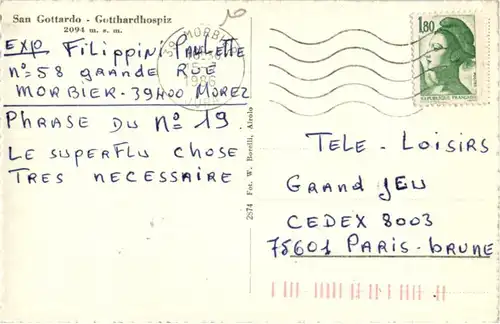 San Gottardo - Gotthardhospiz
2094 m. s. m.
EXP FILIPPINI PAULETTE
N°=58 GRANDE RUE
MORBIER-39400 MOREZ
PHRASE DU N° 19
LE SUPERFLU CHOSE
TRES NECESSAIRE
2874 Fot. W. Borelli, Airolo
MORBIER
1986
1,80
REPUBLIQUE FRANÇAISE
TELE-LOISIRS
GRAND JEU
CEDEX 8003
75601 PARIS-BRUNE